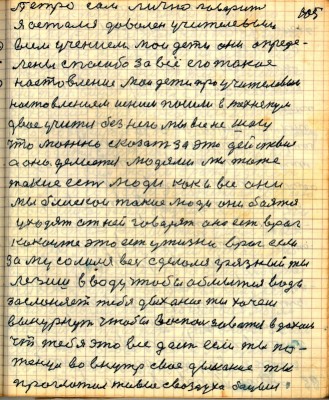 Петро сам лично говорит 605
я остался доволен учителевым
всем учением, мои дети они опреде-
лены спасибо за всё его такое
наставление мои дети про учителевым
наставлением пошли в техникум
двое учится без него мы не шагу
что можно сказать за это действия
а оно делается людями мы тоже
такие есть люди как и все они
мы близкой такие люди они боятся
уходят от ней говорят оно ест враг
какой это ест у жизни враг если
за мусолился вес сделался грязный ты
лезиш в воду чтобы обмытся вода
заслоняет тебя дыхание ты хочеш
вынурнут чтобы воспользоватся вдохом
что тебя это все даст если ты по-
тенул во внутр свое дыхание ты
проглотил живые с воздуха